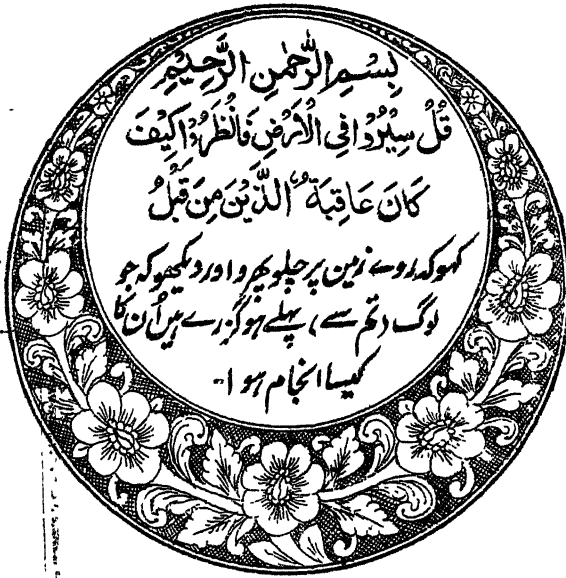 بِسْمِ الرَّحْمٰنِ الرَّحِیْمِ
قُلْ سِیْرُوْا فِی الْاَرْضِ فَانْظُرُوْا کَیْفَ
کَانَ عَاقِبَةُ الَّذِیْنَ مِنْ قَبْلُ
کہو کہ روے زمین پر چلو پھرو اور دیکھو کہ جو
لوگ (تم سے) پہلے ہو گزرے ہیں اُن کا
کیسا انجام ہوا۔